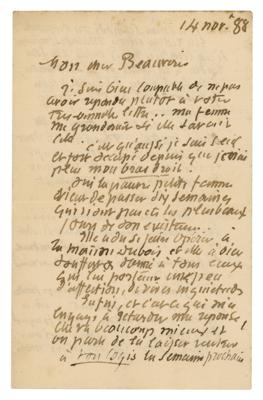 14 nov. 88
Mon cher Beauvais
Je suis bien coupable de ne pas
avoir répondu plutôt à votre
très aimable lettre... ma femme
me gronderait si elle savait
cela.
C'est qu'aussi je suis seul
et fort occupé depuis que je n'ai
plus mon bras droit.
Oui la pauvre petite femme
vient de passer dix semaines
qui n'ont pas été les plus beaux
jours de son existence.
Elle a dû se faire opérer à
la maison Dubois et elle a bien
souffert, donné à tous ceux
qui lui portent un peu
d'affection, de vives inquiétudes
Enfin, et c'est ce qui m'a
engagé à retarder ma réponse,
elle va beaucoup mieux et
on parle de la laisser rentrer
à son logis la semaine prochaine